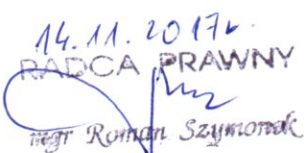 14.11.2017r.
RADCA PRAWNY
mgr Roman Szymonek